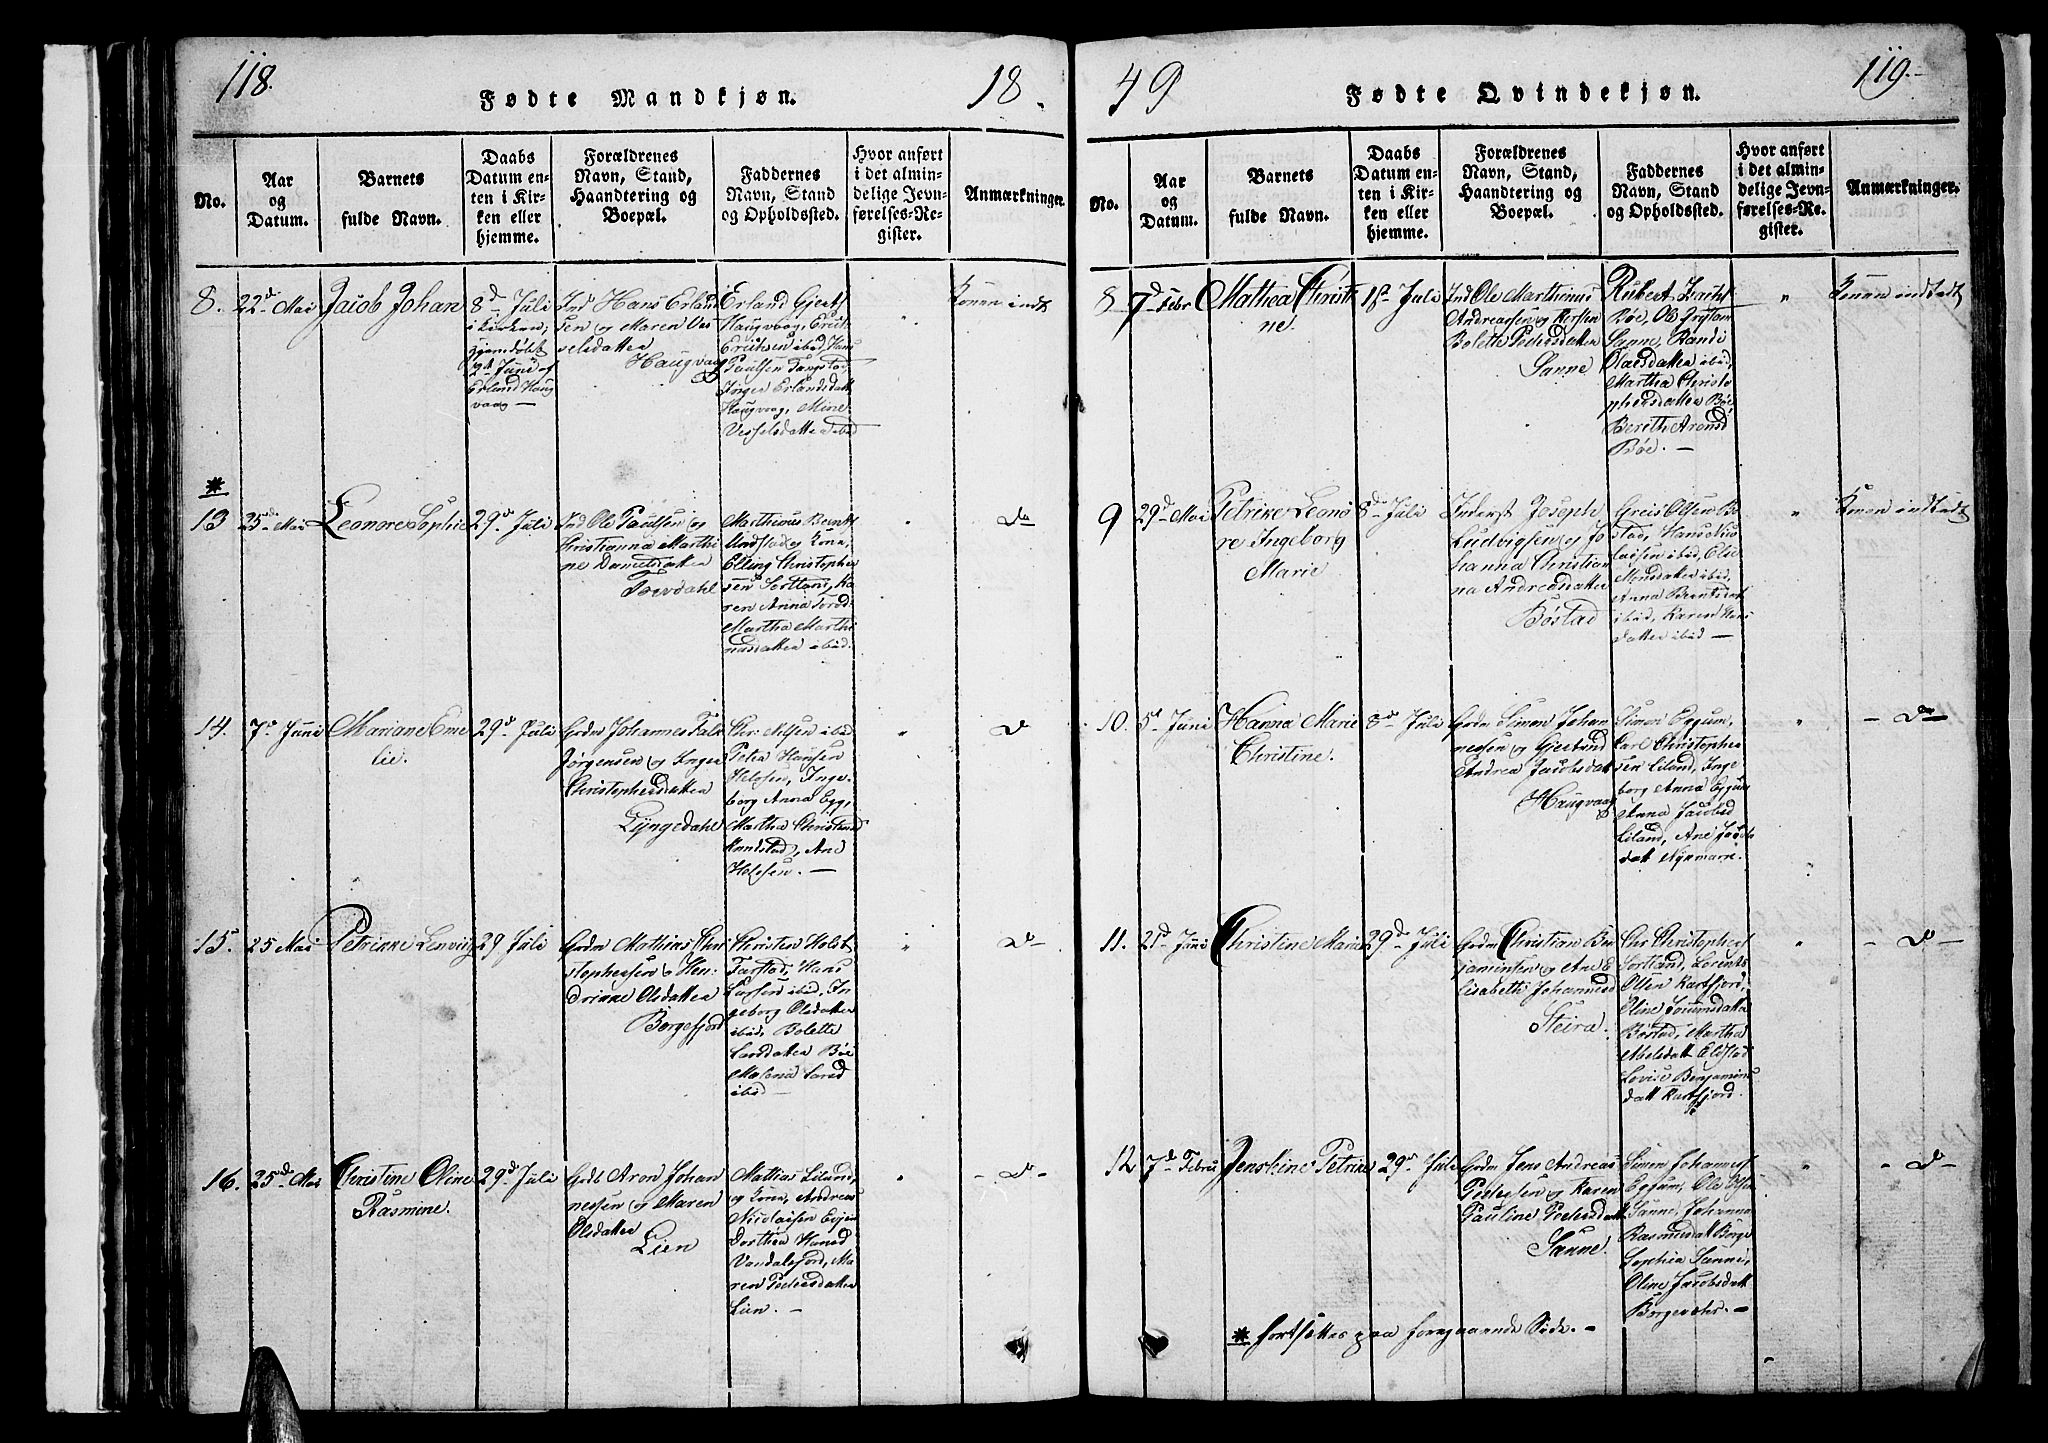 118.
18.
Fødte Mandkjøn.
No.
Aar
og
Datum.
Barnets
fulde Navn.
Daabs
Datum en-
ten i Kir-
ken eller
hjemme.
Forældrenes
Navn, Stand,
Haandtering og
Boepæl.
Faddernes
Navn, Stand
og Opholdssted.
Hvor anført
i det almin-
delige Jevn-
førelses-Re-
gister.
Anmærkninger.
8.
22d Mai
Jacob Johan
8d Juli
i Kirken,
hjemdøbt
Juni af
Erland Haug
vaag —
Ind Hans Erland
sen og Maren Ves
selsdatter
Haugvaag
Erland Gjerts
Haugvaag, Erik
Eriksen ibid, Hans
Paulsen Tangstad
Inger Erlandsdatt
Haugvaag, Mine
Vesselsdatter ibid
"
Konen indt
*
13
25de Mai
Leonore Sophie
29d Juli
Ind Ole Paulsen og
Christianna Marthi
ne Danielsdatter
Torvdahl
Marthinus Bernts
Undstad og Kona,
Elling Christopher
sen Sortland, Ka
ren Anna
Martha Marthi
nusdatter ibid.
"
do
14.
7d Juni
Mariane Eme
lie.
29d Juli
Grdm Johannes Falk
Jørgensen og Inger
Christophersdatter
Lyngedahl
Chr. Nilsen ibid
Peter Hansen
Helosen, Inge
borg Anna Egg,
Martha Christensd
Ramstad, Ane
Helosen. —
"
d
15.
25 Mai
Petrikke Lenvig
29 Juli
Grdm Mathias Chri
stophersen og Hen-
drikke Olsdatter
Borgefjord
Christen Holst
Farstad, Hans
Larsen ibid, In
geborg Olsdatter
ibid, Bolette
Larsdatter Bøe
Malena Larsd
ibid —
"
d —
16.
25de Mai
Christine Oline
Rasmine.
29d Juli
Grdb Aron Johan
nessen og Maren
Olsdatter
Lien
Mathias Liland,
og Kona, Andreas
Nicolaisen Evjen
Dorthea Hansd
Vandalsfjord, Ma
ren Pedersdatter
Lien. —
"
— d —
49
119.
Fødte Qvindekjøn.
No.
Aar
og
Datum.
Barnets
fulde Navn.
Daabs
Datum en-
ten i Kir-
ken eller
hjemme.
Forældrenes
Navn, Stand,
Haandtering og
Boepæl.
Faddernes
Navn, Stand
og Opholdssted.
Hvor anført
i det almin-
delige Jevn-
førelses-Re-
gister.
Anmærkninger.
8
7d Febr
Mathea Christi
ne.
1st Juli
Ind Ole Marthinus
Andreassen og Kirsten
Bolette Pedersdatter
Sanne
Rubert
Bøe, Ole
Sanne, Randi
Olaesdatter ibid,
Martha Christo
phersdatter Bøe
Berith Aronsd
Bøe. —
"
Konen indtadt
9
29d Mai
Petrike Leono
re Ingeborg
Marie
8de Juli
Inderst Joseph
Ludvigsen og Jo
hanna Christian
na Andreasdatter
Bøstad
Greis Olsen Bø
stad, Hans Nico
laisen ibid, Elie
Monsdatter ibid,
Anna Berntsdat
ibid, Karen Hans
datter ibid —
"
Konen indtadt
10.
5d Juni
Hanna Marie
Christine.
8de Juli
Grdm Simon Johan
nessen og Gjertrud
Andrea Jacobsdat
Haugvaag
Simon Eggum,
Carl Christopher
sen Liland, Inge
borg Anna Eggum
Anna Jacobsd
Liland, Ane Jacobs
datt Nykmark.
"
— do
11.
21d Juni
Christine Marie
29de Juli
Grdm Christian Ben
jaminsen og Ane E
lisabeth Johannesd
Steira.
Chr Christophers
Sortland, Lorents
Olsen Kartfjord,
Oline Joramsdatter
Bøstad, Martha
Abelsdatt Eldstad
Lovise Benjamins
datt Kartfjord.
"
— d —
12
7d Febru
Jenskine Petrike
29d Juli
Grdm Jens Andreas
Pedersen og Karen
Pauline Pedersdatt
Sanne.
Simon Johannes
Eggum, Ole Olsen
Sanne, Johanna
Rasmusdatt Borge
Sophia Sanne,
Oline Jacobsdatt
Borgevær. —
"
— d —
* Fortsættes paa foregaaende Side. —